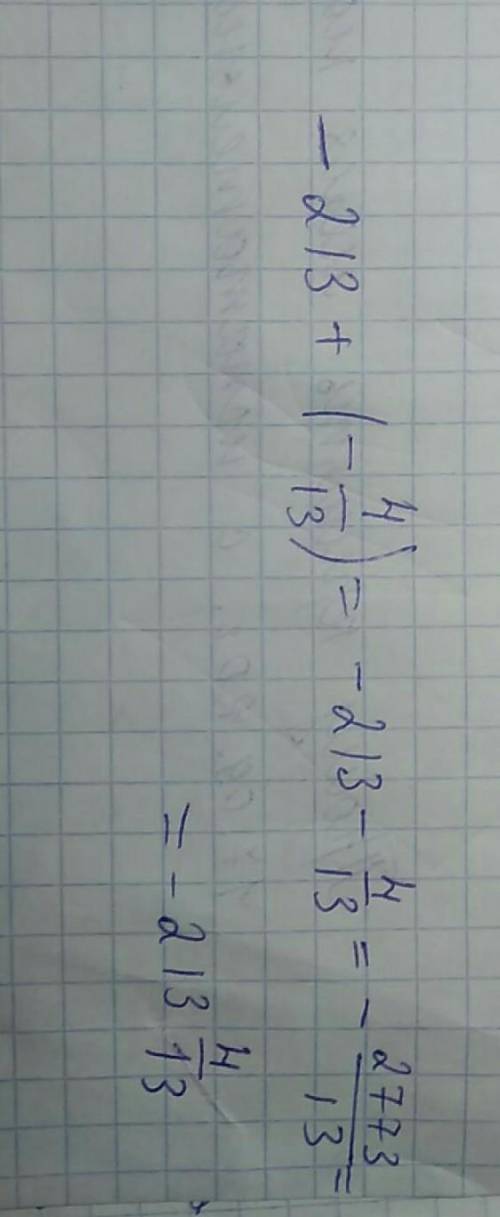 - 213 + (- 4/13) = - 213 - 4/13 = - 2773/13 =
= - 213 4/13